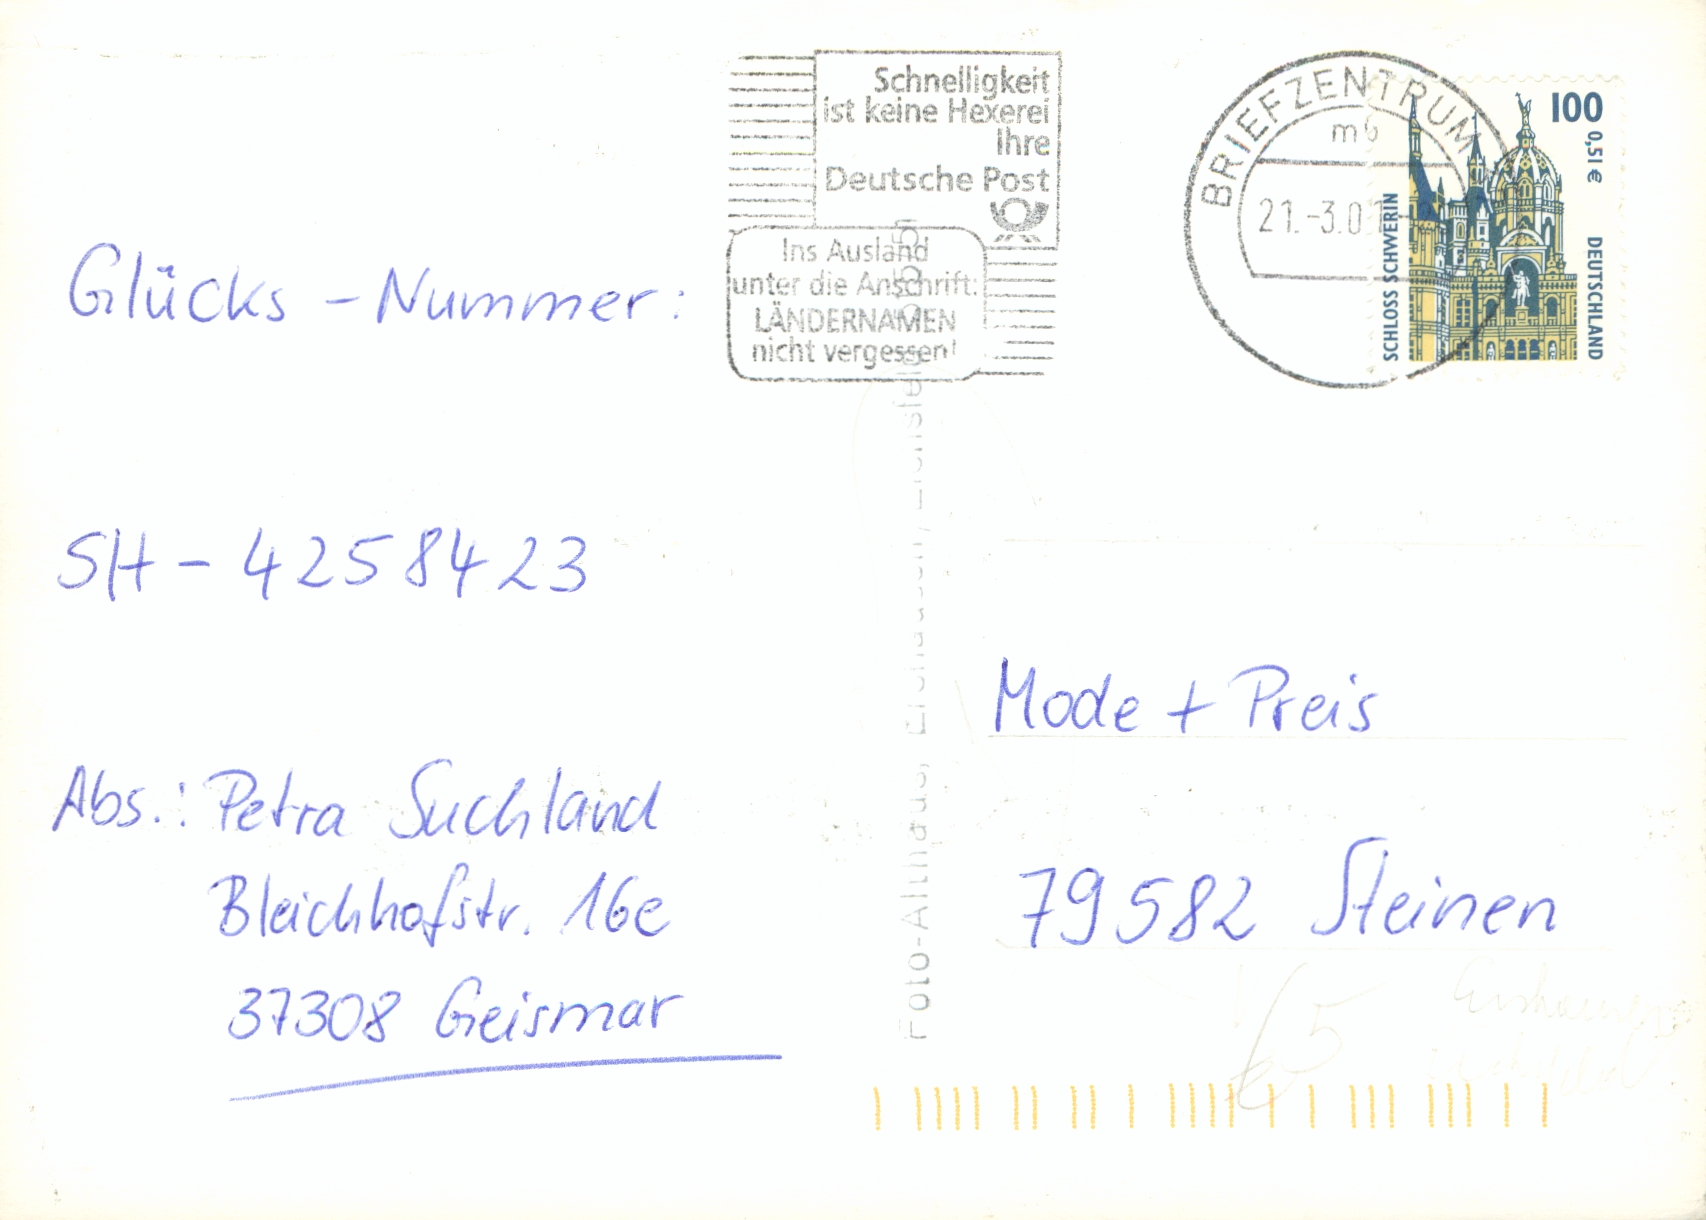 Schnelligkeit
ist keine Hexerei
Ihre
Deutsche Post
Ins Ausland
unter die Anschrift:
LÄNDERNAMEN
nicht vergessen!
BRIEFZENTRUM
mb
21.-3.01
100
0,51 €
SCHLOSS SCHWERIN
DEUTSCHLAND
Glücks - Nummer:
SH - 4258423
Abs.: Petra Suchland
Bleichhofstr. 16e
37308 Geismar
Mode + Preis
79582 Steinen